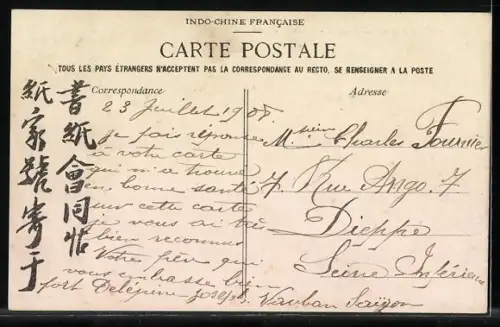 INDO-CHINE FRANÇAISE
CARTE POSTALE
TOUS LES PAYS ÉTRANGERS N'ACCEPTENT PAS LA CORRESPONDANCE AU RECTO, SE RENSEIGNER A LA POSTE
Correspondance
23 Juillet 1908.
je fais réponse
à votre carte
qui m'a trouvé
en bonne santé
sur cette carte
je vous ai très
bien reconnus
Votre frère qui
vous embrasse bien
fort Delépine Joseph. Vauban Saïgon
書紙會同帖
紙家號寄于
Adresse
Monsieur Charles Fournier
7. Rue Ango. 7
Dieppe
Seine Inférieure